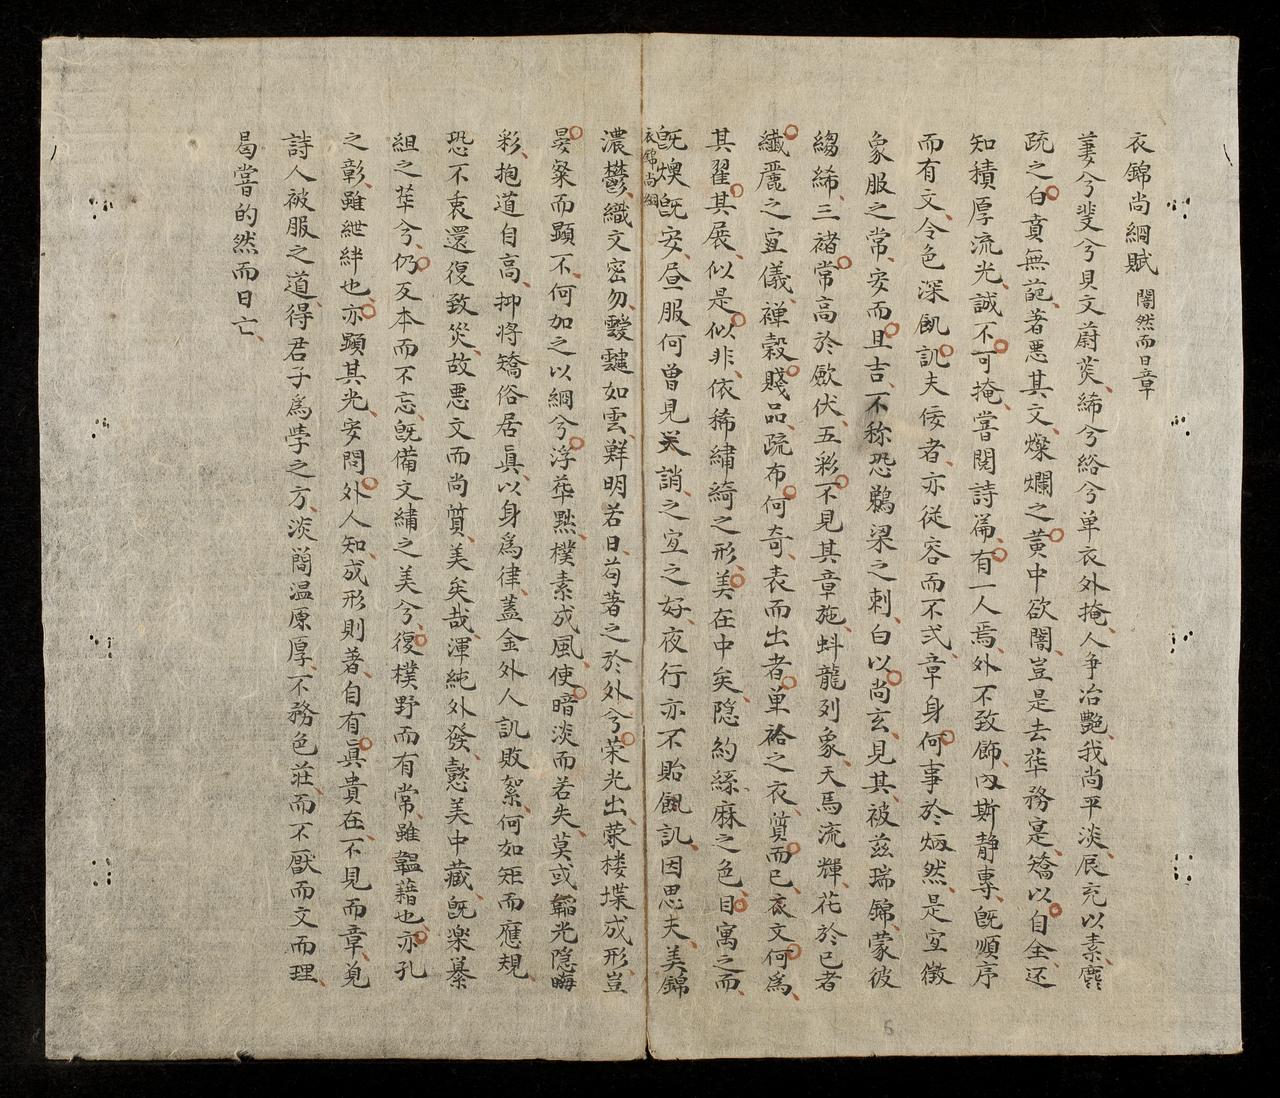 衣錦尚絅賦 闇然而日章
萋兮斐兮貝文蔚茭絺兮綌兮单衣外掩人争冶艷我尚平淡辰充以素麈
疏之白賁無葩著悪其文燦爛之黄中欲闇豈是去華務寔矯以自全还
知積厚流光誠不可掩嘗閱詩篇有一人焉外不致餙内斯静專既順序
而有文令色深飢訊夫佞者亦従容而不弍章身何事於炳然是宜徴
象服之常安而且吉不称恐鵜梁之刺白以尚玄見其被玆瑞錦蒙彼
縐絺三褚常高於歛伏五彩不見其章施蚪龍列象天馬流輝花於已者
纎麗之宜儀襌縠賤品疏布何奇表而出者单袷之衣質而已衣文何爲
其翟其展似是似非依稀繡綺之形美在中矣隐約絲麻之色目寓之而
既燠既安昼服何曽見笑誚之宜之好夜行亦不貽飢訊因思夫美錦
衣錦尚絅
濃欝織文密勿靉靆如雲鮮明若日苟著之於外兮荣光出荣楼堞成形豈
晏粲而顕不何加之以絅兮浮華黙樸素成風使暗淡而若失莫或韜光隐晦
彩抱道自高抑将矯俗居眞以身爲律蓋金外人訊敗絮何如矩而應規
恐不衷還復致災故悪文而尚質美矣哉渾純外發懿美中藏既楽綦
組之華兮仍反本而不忘既備文繡之美兮復樸野而有常雖韞藉也亦孔
之彰雖紲絆也亦顕其光安問外人知成形則著自有眞貴在不見而章覓
詩人被服之道得君子爲学之方淡簡温原厚不務色莊而不厭而文而理
曷嘗的然而日亡